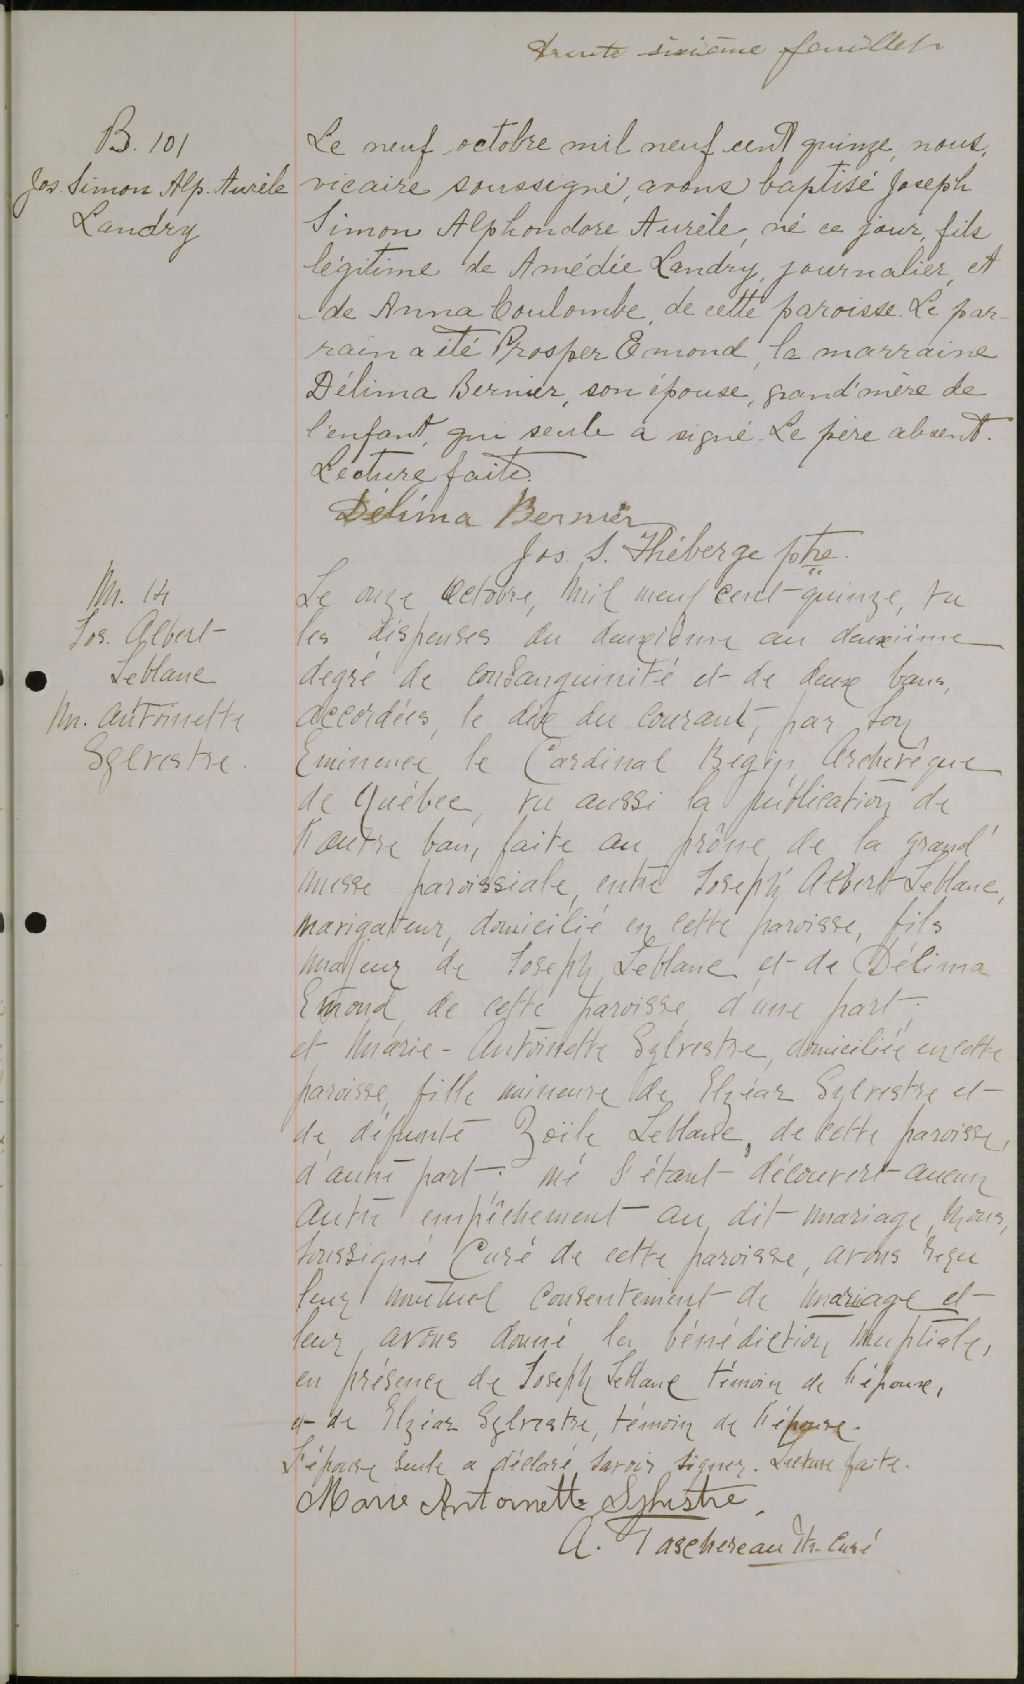 trente sixième feuillet
B. 101
Jos. Simon Alp. Aurèle
Landry
Le neuf octobre mil neuf cent quinze, nous,
vicaire soussigné, avons baptisé Joseph
Simon Alphondore Aurèle, né ce jour, fils
légitime de Amédée Landry, journalier, et
de Anna Coulombe, de cette paroisse. Le par-
rain a été Prosper Emond, la marraine
Délima Bernier, son épouse, grand'mère de
l'enfant, qui seule a signé. Le père absent.
Lecture faite.
Délima Bernier
Jos. S. Théberge ptre.
M. 14
Jos. Albert
Leblanc
M. Antoinette
Sylvestre.
Le onze Octobre, mil neuf cent quinze, vu
les dispenses du deuxième au deuxième
degré de consanguinité et de deux bans,
accordées, le dix du courant, par Son
Eminence le Cardinal Bégin, Archevêque
de Québec, vu aussi la publication de
l'autre ban, faite au prône de la grand'
messe paroissiale, entre Joseph Albert Leblanc,
navigateur, domicilié en cette paroisse, fils
majeur de Joseph Leblanc et de Délima
Emond, de cette paroisse d'une part;
et Marie-Antoinette Sylvestre, domiciliée en cette
paroisse, fille mineure de Elzéar Sylvestre et
de défunte Zoïle Leblanc, de cette paroisse,
d'autre part: ne s'étant découvert aucun
autre empêchement au dit mariage, Nous,
soussigné Curé de cette paroisse, avons reçu
leur mutuel consentement de mariage et
leur avons donné la bénédiction nuptiale,
en présence de Joseph Leblanc témoin de l'époux,
et de Elzéar Sylvestre, témoin de l'épouse.
L'épouse seule a déclaré savoir signer. Lecture faite.
Marie Antoinette Sylvestre
A. Taschereau Ptr. Curé